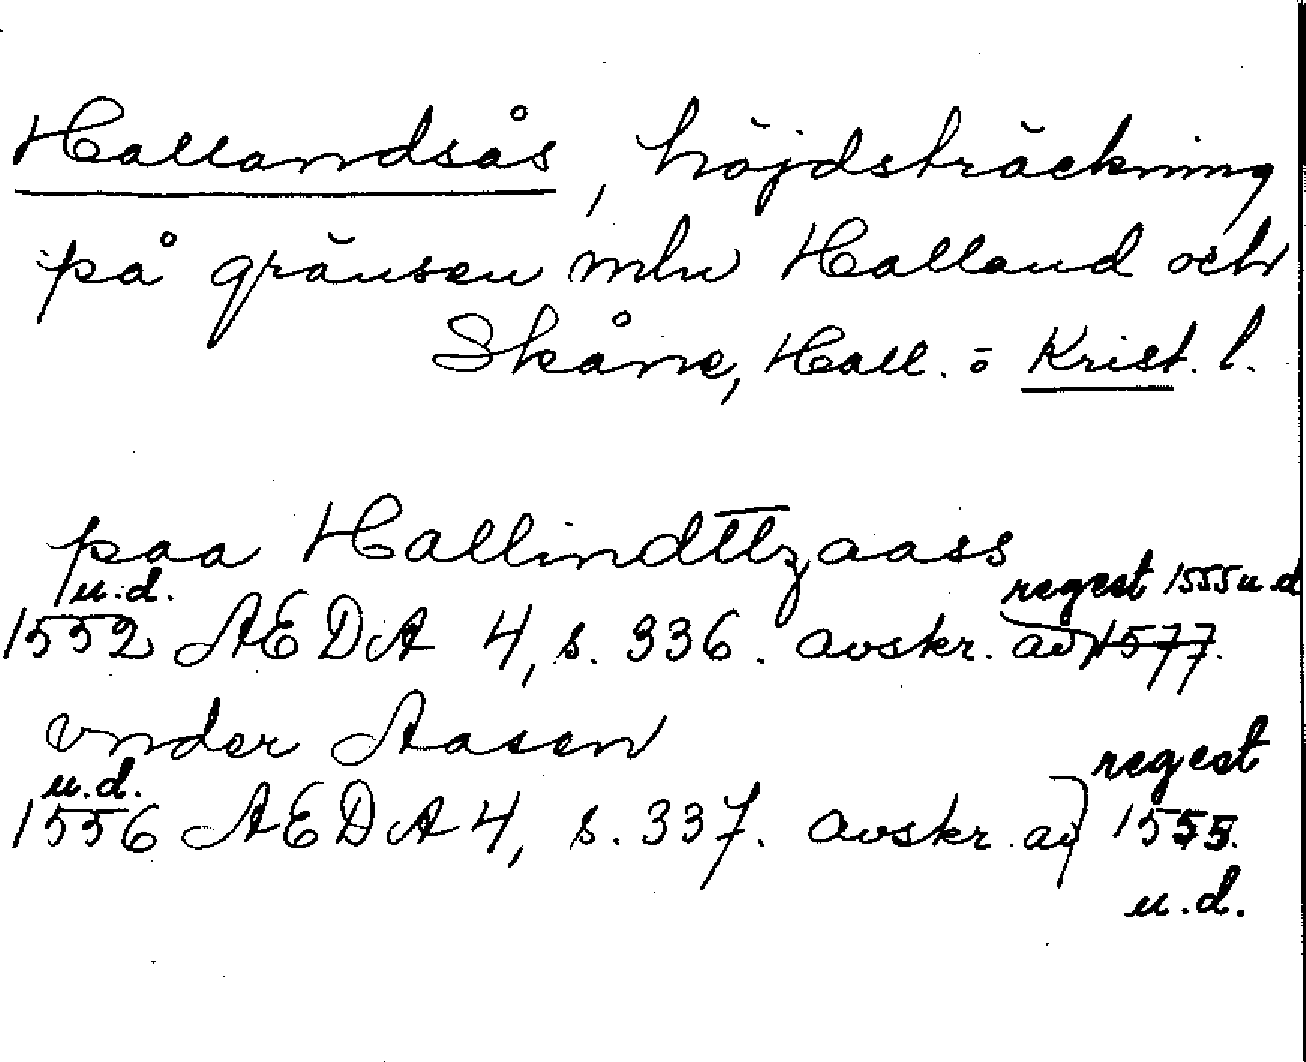 Hallandsås, höjdsträckning
på gränsen mln Halland och
Skåne, Hall. o Krist. l.
paa Hallindttzaass
u.d. regest 1555 u.d
1552 AEDA 4, s. 336. avskr. av 1577.
vnder Aasen
u.d. regest
1556 AEDA 4, s. 337. avskr. av 1555.
u.d.